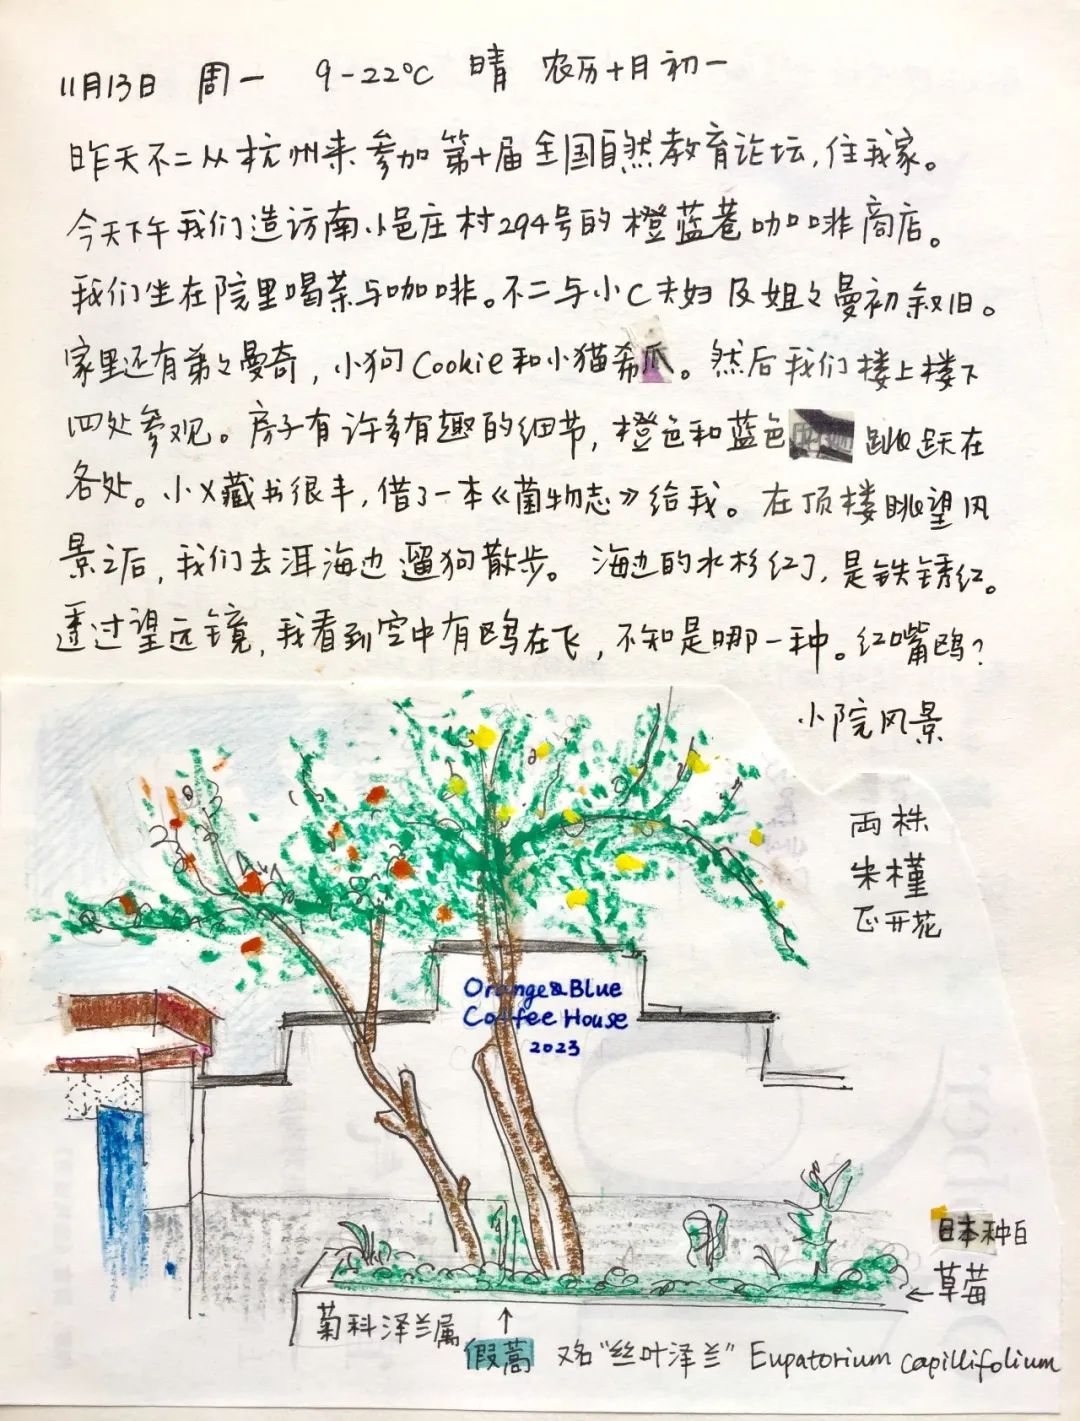 11月13日 周一 9-22℃ 晴 农历十月初一
昨天不二从杭州来参加第十届全国自然教育论坛，住我家。
今天下午我们造访南小邑庄村294号的橙蓝巷咖啡商店。
我们坐在院里喝茶与咖啡。不二与小C夫妇及姐々曼初叙旧。
家里还有弟々曼奇，小狗Cookie和小猫希爪。然后我们楼上楼下
四处参观。房子有许多有趣的细节，橙色和蓝色跳跃在
各处。小X藏书很丰，借了一本《菌物志》给我。在顶楼眺望风
景之后，我们去洱海边遛狗散步。海边的水杉红了，是铁锈红。
透过望远镜，我看到空中有鸥在飞，不知是哪一种。红嘴鸥？
小院风景
两株
朱槿
正开花
Orange&Blue
Coffee House
2023
日本种白
←草莓
菊科泽兰属
↑
假蒿 又名“丝叶泽兰” Eupatorium capillifolium